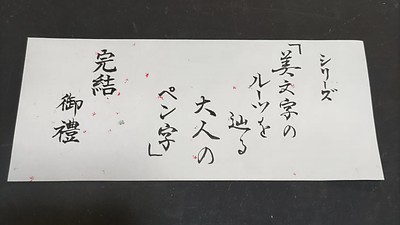 シリーズ
「美文字の
ルーツを
辿る
大人の
ペン字」
完結
御禮